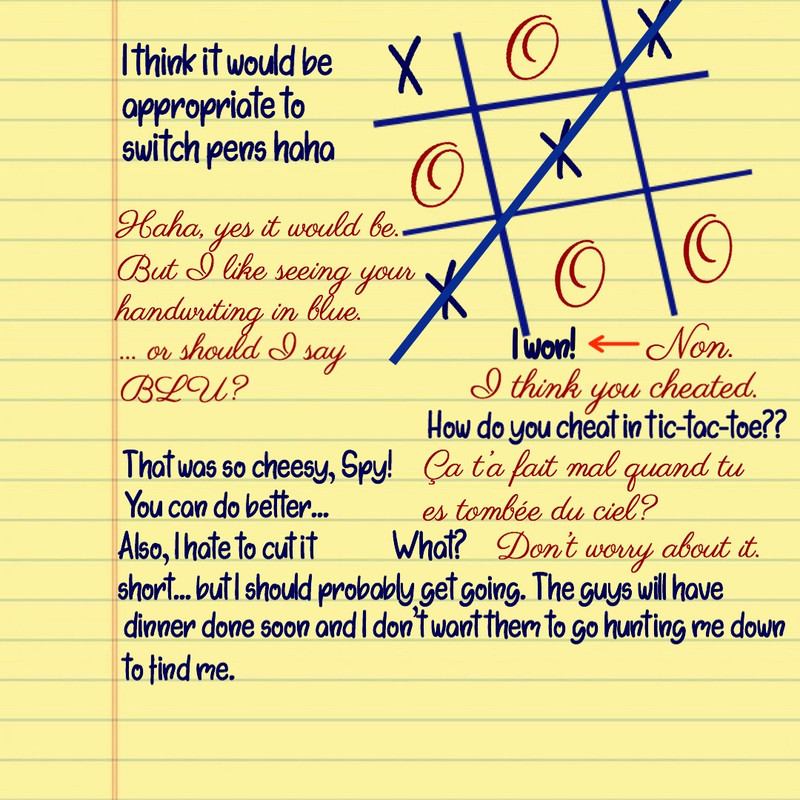 I think it would be
appropriate to
switch pens haha
X O X
O X
X O O
Haha, yes it would be.
But I like seeing your
handwriting in blue.
... or should I say
BLU?
I won! ← Non.
I think you cheated.
How do you cheat in tic-tac-toe??
That was so cheesy, Spy!
You can do better...
Ça t'a fait mal quand tu
es tombée du ciel?
What? Don't worry about it.
Also, I hate to cut it
short... but I should probably get going. The guys will have
dinner done soon and I don't want them to go hunting me down
to find me.